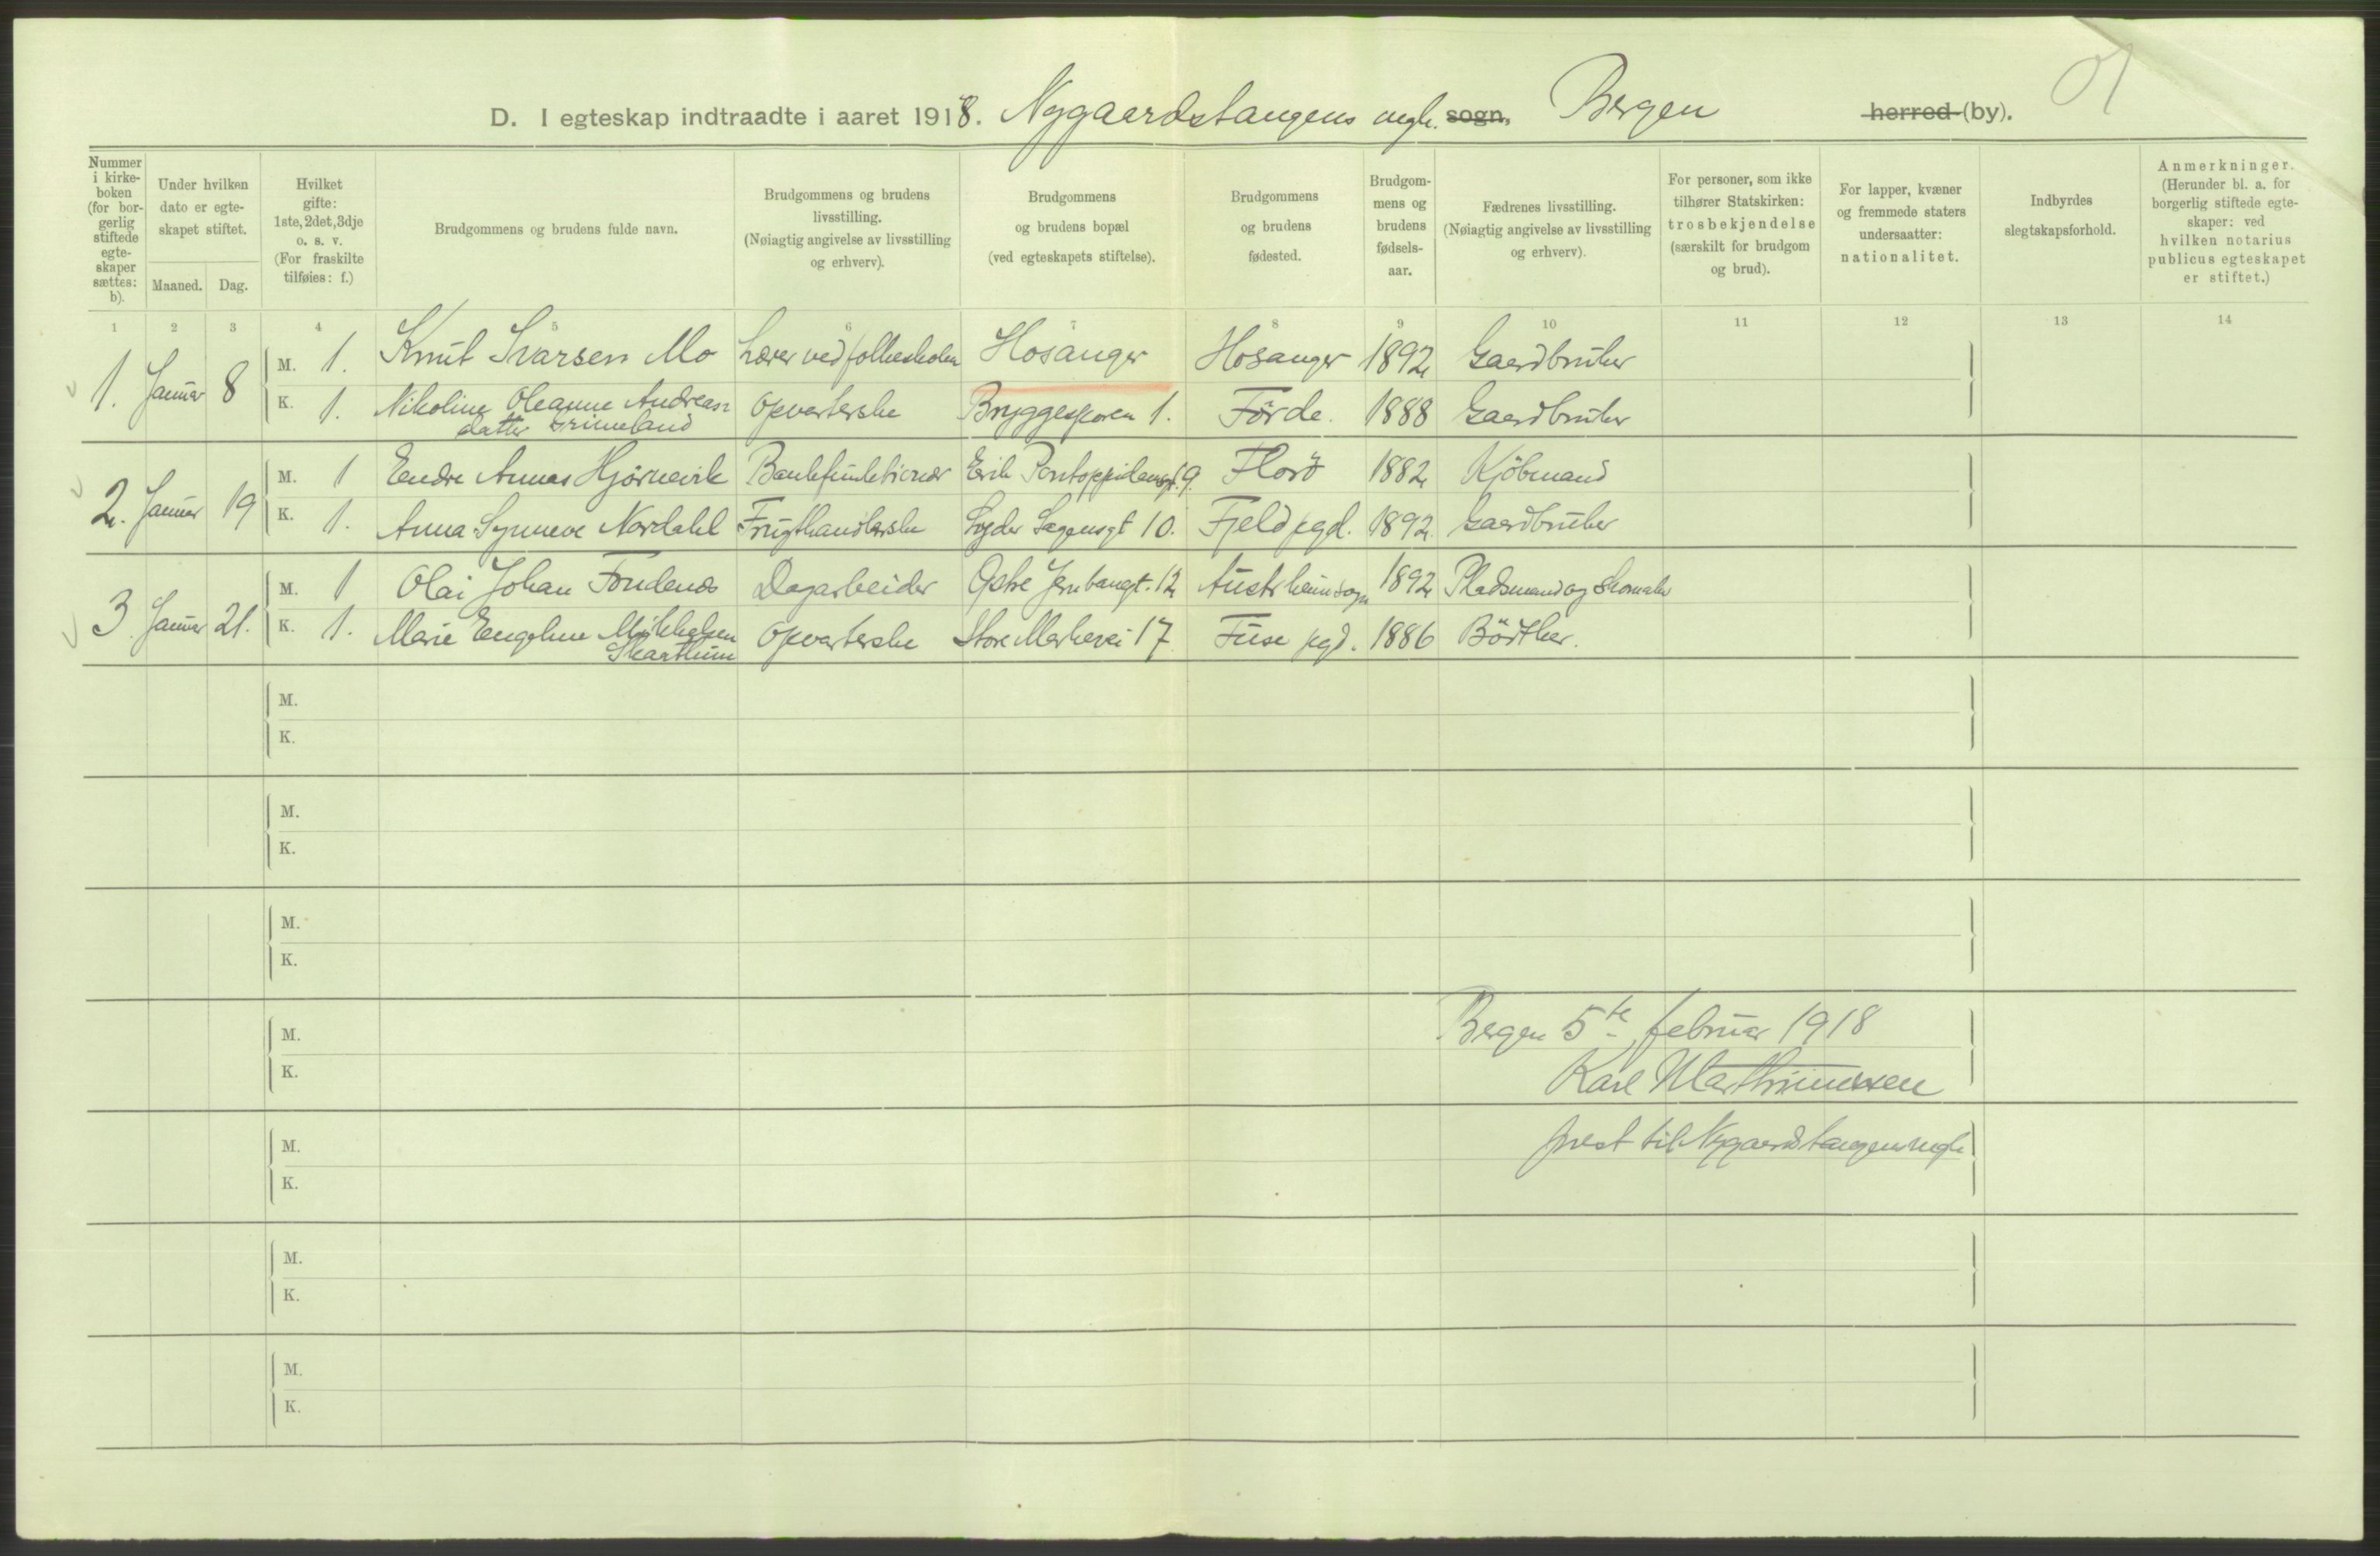 D. I egteskap indtraadte i aaret 1918. Nygaardstangens mgh. sogn, Bergen herred (by).
Nummer i kirkeboken (for borgerlig stiftede egteskaper sættes: b).
Under hvilken dato er egteskapet stiftet.
Maaned. Dag.
Hvilket gifte: 1ste, 2det, 3dje o. s. v. (For fraskilte tilføies: f.)
Brudgommens og brudens fulde navn.
Brudgommens og brudens livsstilling. (Nøiagtig angivelse av livsstilling og erhverv).
Brudgommens og brudens bopæl (ved egteskapets stiftelse).
Brudgommens og brudens fødested.
Brudgommens og brudens fødselsaar.
Fædrenes livsstilling. (Nøiagtig angivelse av livsstilling og erhverv).
For personer, som ikke tilhører Statskirken: trosbekjendelse (særskilt for brudgom og brud).
For lapper, kvæner og fremmede staters undersaatter: nationalitet.
Indbyrdes slegtskapsforhold.
Anmerkninger. (Herunder bl. a. for borgerlig stiftede egteskaper: ved hvilken notarius publicus egteskapet er stiftet.)
1 2 3 4 5 6 7 8 9 10 11 12 13 14
1. Januar 8 M. 1. Knut Ivarsen Mo Lærer ved folkeskolen Hosanger Hosanger 1892 Gaardbruker
K. 1. Nikoline Oleanne Andreas Opvarterske Bryggesporen 1. Førde. 1888 Gaardbruker
datter Grimeland
2. Januar 19 M. 1 Endre Annas Hjørnevik Bankfunktionær Erik Pontoppidansgt. 9. Florö 1882 Kjöbmand
K. 1. Anna Synneve Nordahl Frugthandlerske Lyder Sagensgt 10. Fjeld pgd. 1892. Gaardbruker
3. Januar 21. M. 1 Olai Johan Fondenes Dagarbeider Østre Jernbanegt. 12 Austrheim sogn 1892 Pladsmand og Skomaker
K. 1. Marie Engeline Mikkelsen Opvarterske Store Markevei 17 Fuse pgd. 1886 Bödtker.
Skaathun
M.
K.
M.
K.
M.
K.
M.
K.
Bergen 5te februar 1918
Karl Marthinussen
prest til Nygaardstangens mgh
M.
K.
M.
K.
M.
K.